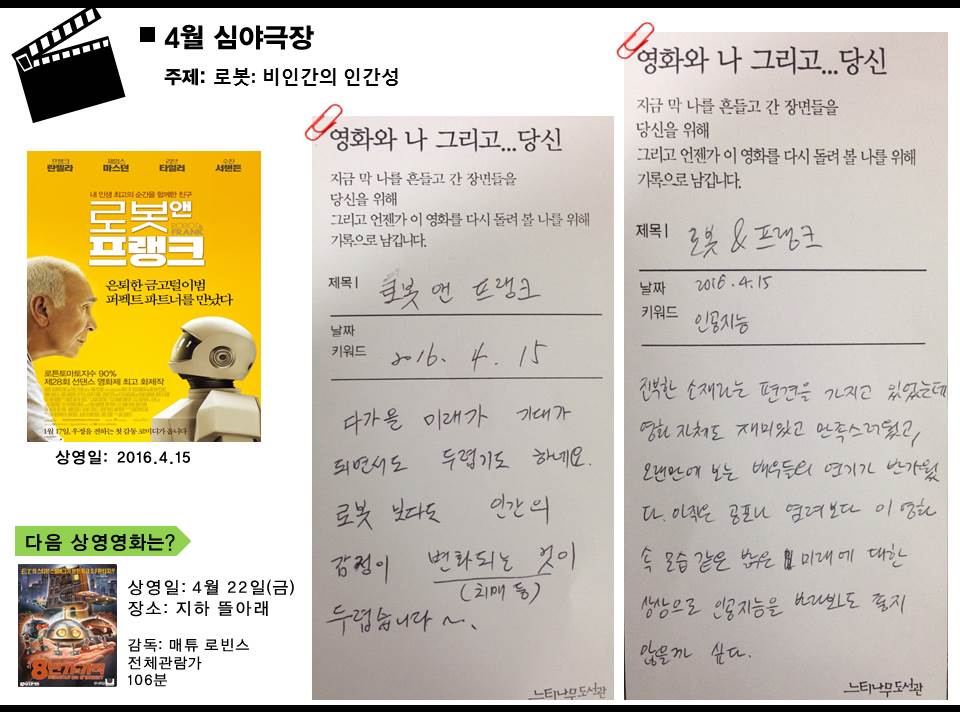 4월 심야극장
주제: 로봇: 비인간의 인간성
프랭크 란젤라
제임스 마스던
리브 타일러
수잔 서랜든
내 인생 최고의 순간을 함께한 친구
로봇앤
ROBOT & FRANK
프랭크
은퇴한 금고털이범
퍼펙트 파트너를 만났다
로튼토마토지수 90%
제28회 선댄스 영화제 최고 화제작
1월 17일, 우정을 전하는 첫 감동 코미디가 옵니다
상영일: 2016.4.15
다음 상영영화는?
8번가의
상영일: 4월 22일(금)
장소: 지하 뜰아래
감독: 매튜 로빈스
전체관람가
106분
영화와 나 그리고...당신
지금 막 나를 흔들고 간 장면들을
당신을 위해
그리고 언젠가 이 영화를 다시 돌려 볼 나를 위해
기록으로 남깁니다.
제목| 로봇 앤 프랭크
날짜
키워드 2016. 4. 15
다가올 미래가 기대가
되면서도 두렵기도 하네요.
로봇 보다도 인간의
감정이 변화되는 것이
(치매 등)
두렵습니다~.
느티나무도서관
영화와 나 그리고...당신
지금 막 나를 흔들고 간 장면들을
당신을 위해
그리고 언젠가 이 영화를 다시 돌려 볼 나를 위해
기록으로 남깁니다.
제목| 로봇 & 프랭크
날짜 2016.4.15
키워드 인공지능
진부한 소재라는 편견을 가지고 있었는데
영화 자체도 재미있고 만족스러웠고,
오랜만에 보는 배우들의 연기가 반가웠
다. 아직은 공포나 염려보다 이 영화
속 모습 같은 밝은 미래에 대한
상상으로 인공지능을 바라봐도 좋지
않을까 싶다.
느티나무도서관